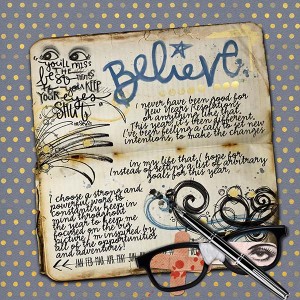 you'll miss
THE
best things
if YOU KEEP
YOUR eyes
SHUT
Believe
I never have been good for
new years resolutions
or anything like that.
This year it's been different,
I've been feeling a call to set new
intentions, to make the changes
in my life that I hope for.
Instead of setting a list of arbitrary
goals for this year,
I choose a strong and
powerful word to
constantly keep in
mind throughout
the year to keep me
focused on the big
picture. I'm inspired by
all of the opportunities
and adventures!
JAN FEB MAR APR MAY JUN